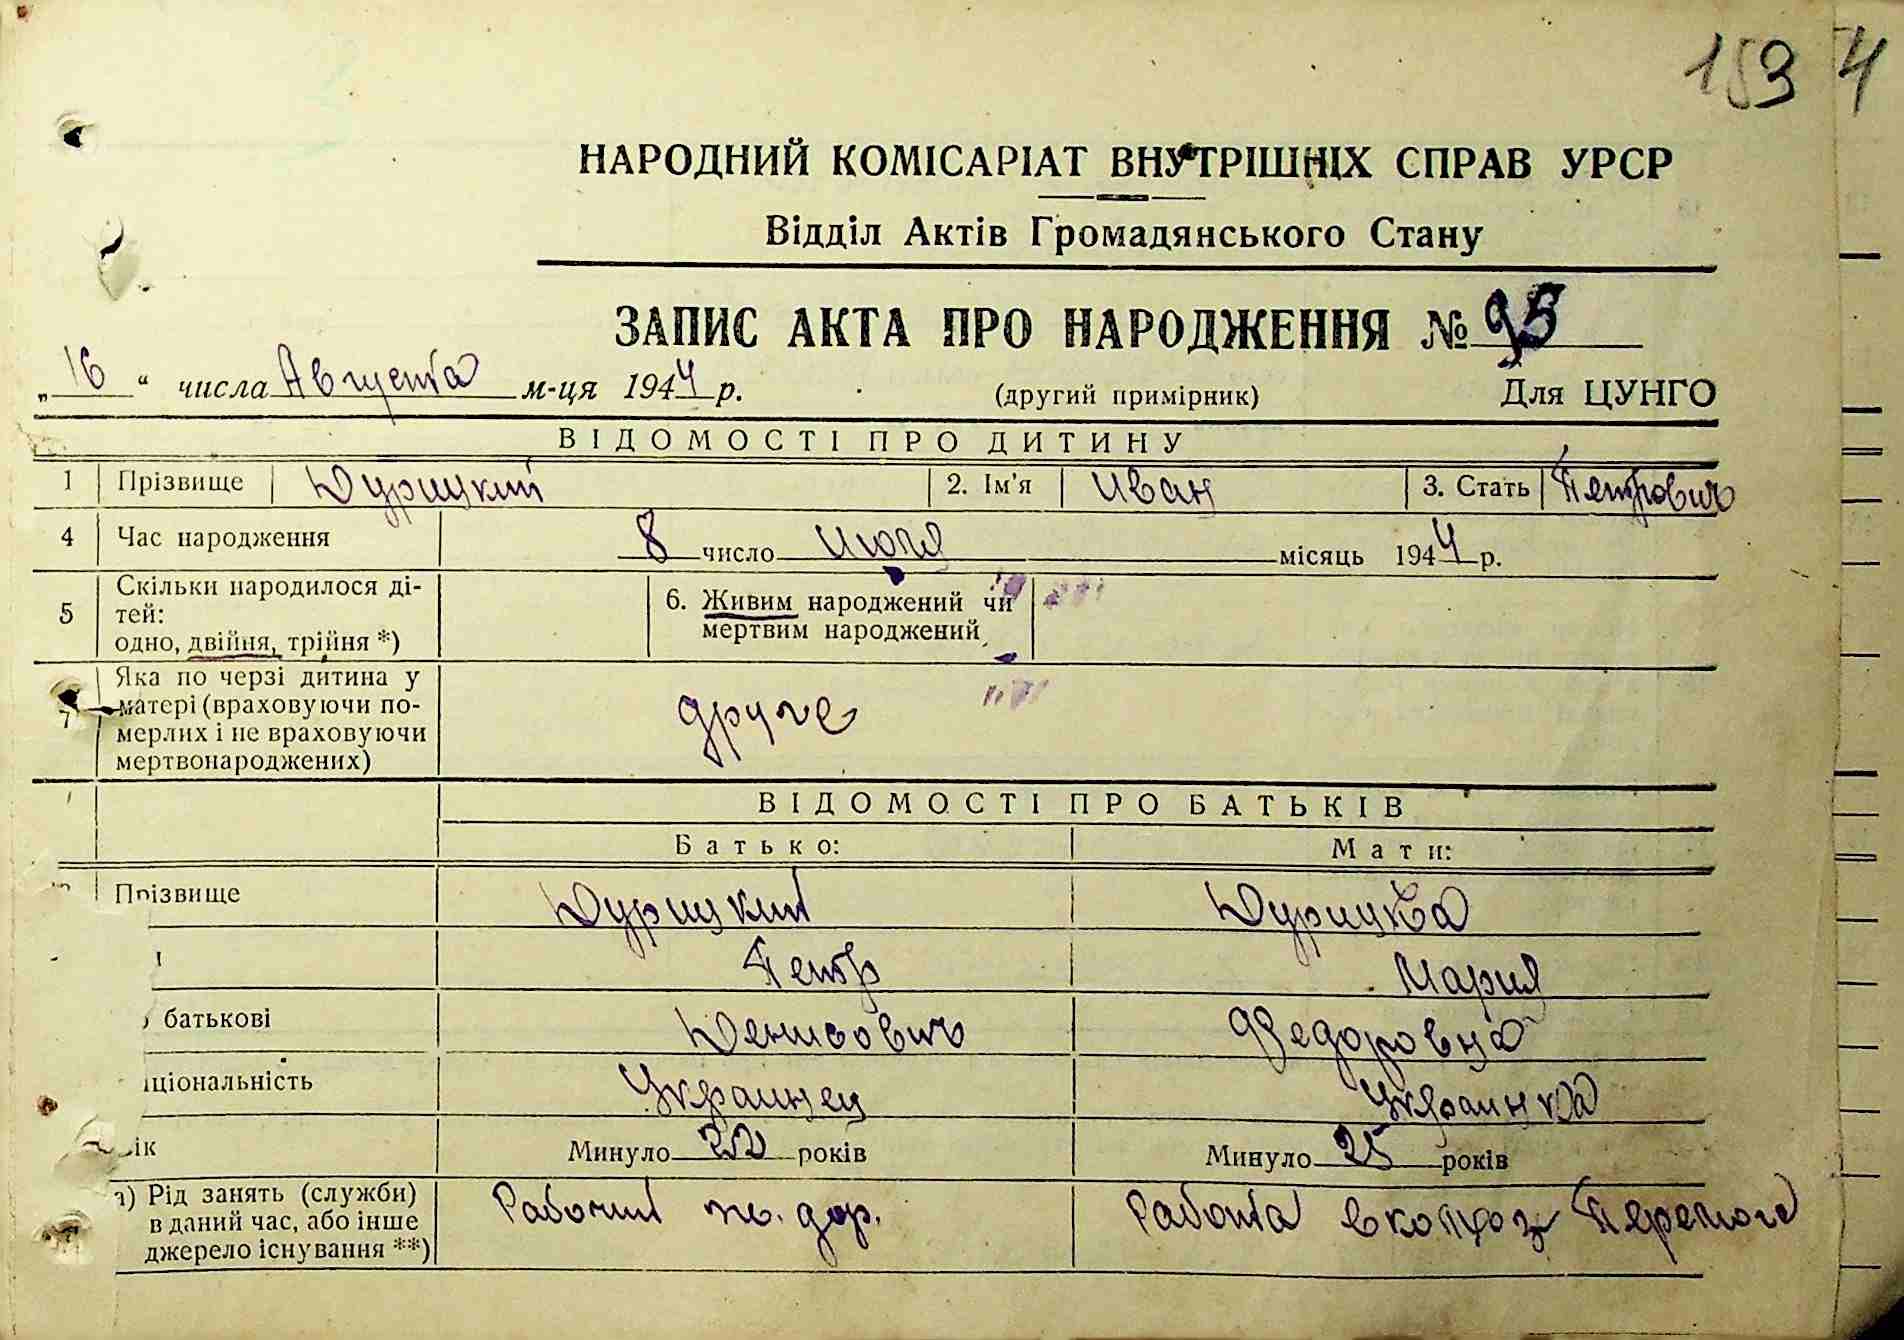 153 4
НАРОДНИЙ КОМІСАРІАТ ВНУТРІШНІХ СПРАВ УРСР
Відділ Актів Громадянського Стану
ЗАПИС АКТА ПРО НАРОДЖЕННЯ № 95
„16“ числа Августа м-ця 1944 р. (другий примірник) Для ЦУНГО
ВІДОМОСТІ ПРО ДИТИНУ
1 Прізвище Дурицкий 2. Ім'я Иван 3. Стать Петрович
4 Час народження 8 число Июля місяць 1944 р.
5 Скільки народилося ді-
тей:
одно, двійня, трійня *)
6. Живим народжений чи
мертвим народжений
7 Яка по черзі дитина у
матері (враховуючи по-
мерлих і не враховуючи
мертвонароджених)
друге
ВІДОМОСТІ ПРО БАТЬКІВ
Батько: Мати:
Прізвище Дурицкий Дурицка
Петр Мария
батькові Денисович Федоровна
ціональність Украинец Украинка
ік Минуло 22 років Минуло 25 років
а) Рід занять (служби)
в даний час, або інше
джерело існування **)
Рабочий ж. дор. Работа в колхоз Перемога